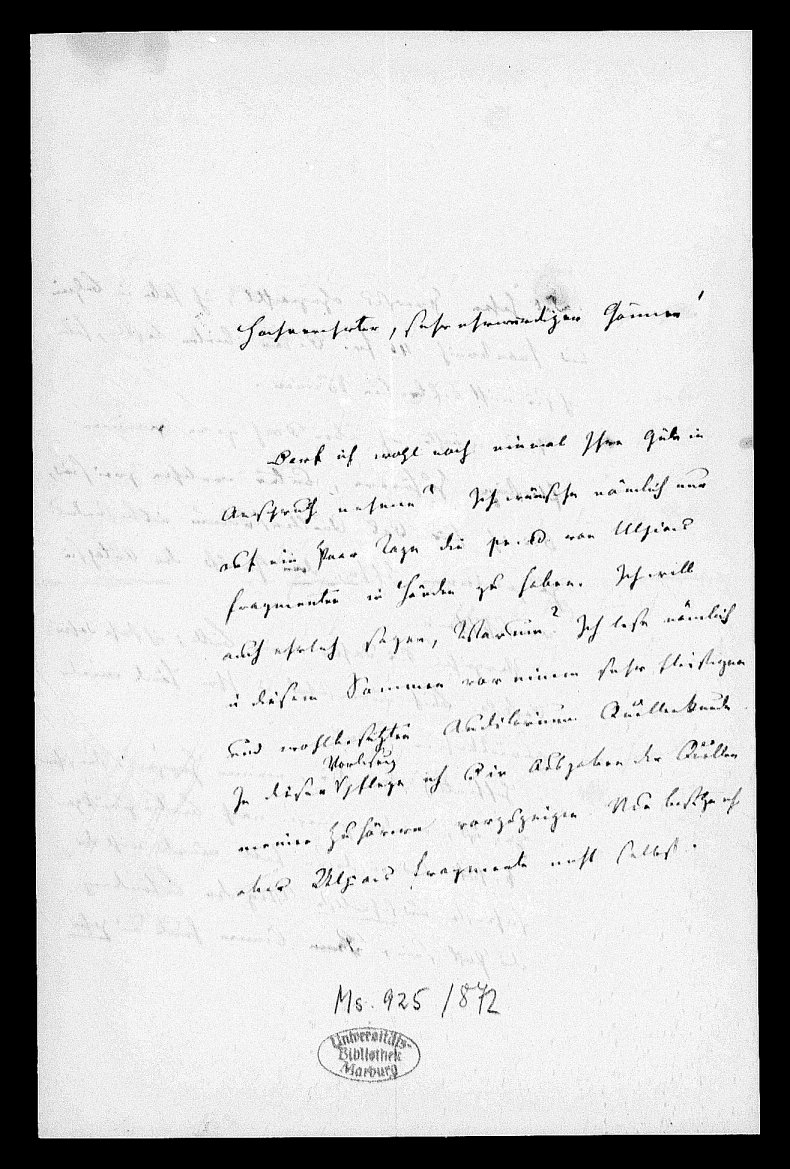 Hochverehrter, sehr ehrwürdiger Gönner!
Darf ich wohl noch einmal Ihre Güte in
Anspruch nehmen? Ich wünsche nämlich nur
auf ein Paar Tage die von Ulpians
fragmenten in Händen zu haben. Ich will
auch ehrlich sagen, Warum? Ich lese nämlich
in diesem Sommer vor einem sehr fleißigen
und wohlbesetzten Auditorium Quellenkunde.
In dieser Vorlesung pflege ich die Ausgaben der Quellen
meinen Zuhörern vorzuzeigen. Nun besitze ich
aber Ulpians fragmente nicht selbst.
Ms. 925/872
Universitäts-
Bibliothek
Marburg